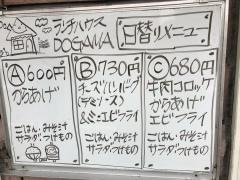 ランチハウス
DOGAWA
日替リメニュー
Ⓐ600円
からあげ
ごはん・みそ汁
サラダ・つけもの
Ⓑ730円
チーズハンバーグ
(デミソース)
&ミニエビフライ
ごはん・みそ汁
サラダ・つけもの
Ⓒ680円
牛肉コロッケ
からあげ
エビフライ
ごはん・みそ汁
サラダ・つけもの